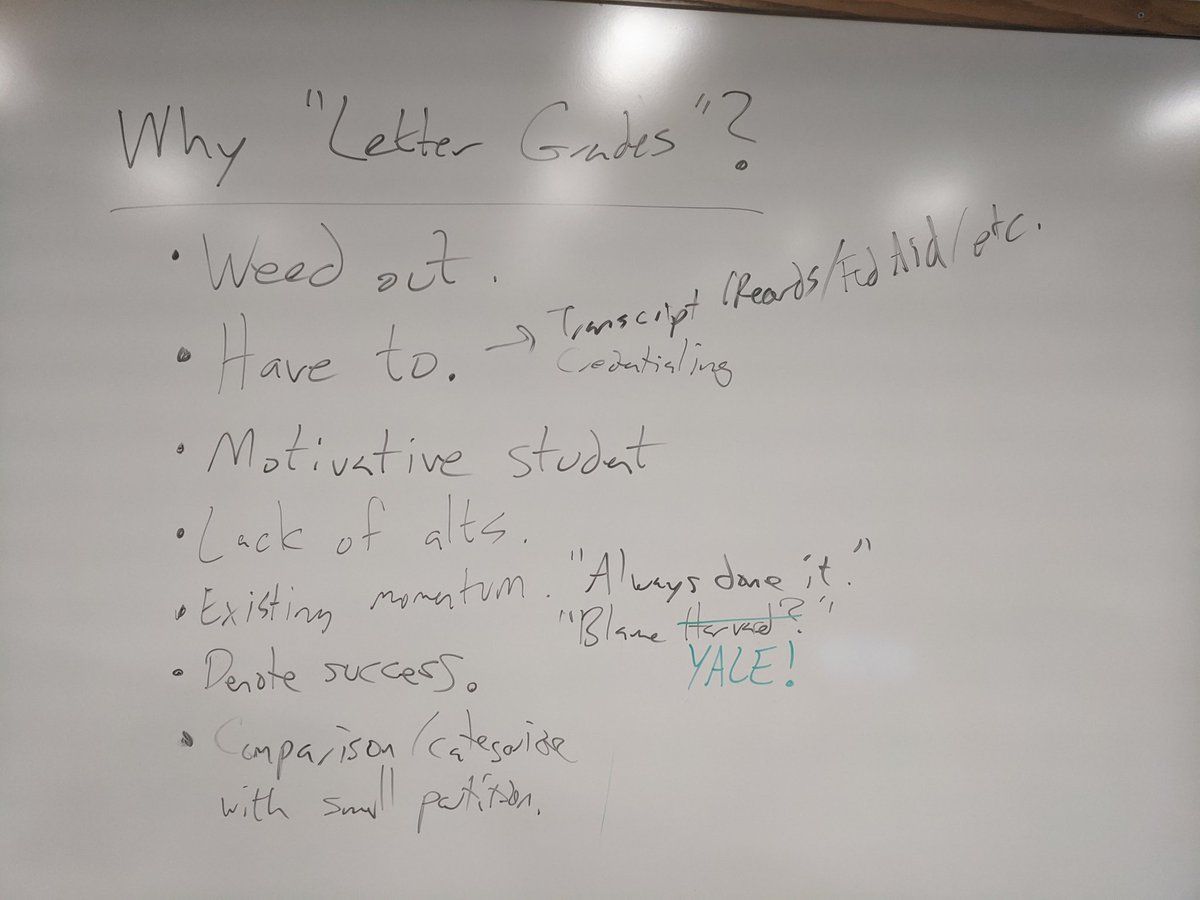 Why "Letter Grades"?
• Weed out.
• Have to. → Transcript/Records/Fed Aid/etc.
Credentialing
• Motivative student
• Lack of alts.
• Existing momentum. "Always done it."
"Blame Harvard?"
YALE!
• Denote success.
• Comparison/categorize
with small partition.